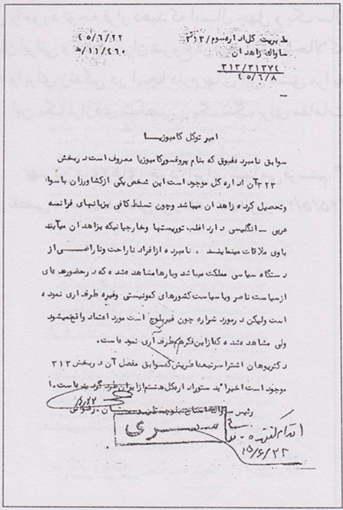 ۴۵/۶/۲۲
مدیریت کل اداره سوم ۳۱۳
ساواک زاهدان
۳۱۳/۳۱۳۷۴
۴۵/۶/۸
امیر توکل کامبوزیا
سوابق نامبرده فوق که بنام پروفسور کامبوزیا معروف است در بخش
۳۲۳ آن اداره کل موجود است این شخص یکی از کشاورزان باسواد
و تحصیل کرده زاهدان میباشد و چون تسلط کافی بزبانهای فرانسه
عربی - انگلیسی دارد اغلب توریستها و خارجیانیکه بزاهدان میآیند
با وی ملاقات مینمایند. نامبرده از افراد ناراحت و ناراضی از
دستگاه سیاسی مملکت میباشد و بارها مشاهده شده که در حضور عده ای
از سیاست ناصر و یا سیاست کشورهای کمونیستی وغیره طرفداری نموده
است ولیکن در مورد شراره چون غیر بلوچ است مورد اعتماد واقع نمیشود
ولی مشاهده شده که از این فکر هم طرفداری نموده است.
دکتر یوهان اشتراسر تبعه اطریش که سوابق مفصل آن در بخش ۳۱۳
موجود است اخیرا" به دستور اداره کل هشتم از ایران طرد گردیده است.
رئیس سازمان اطلاعات و امنیت بلوچستان و سیستان.
سری
۴۵/۶/۲۲